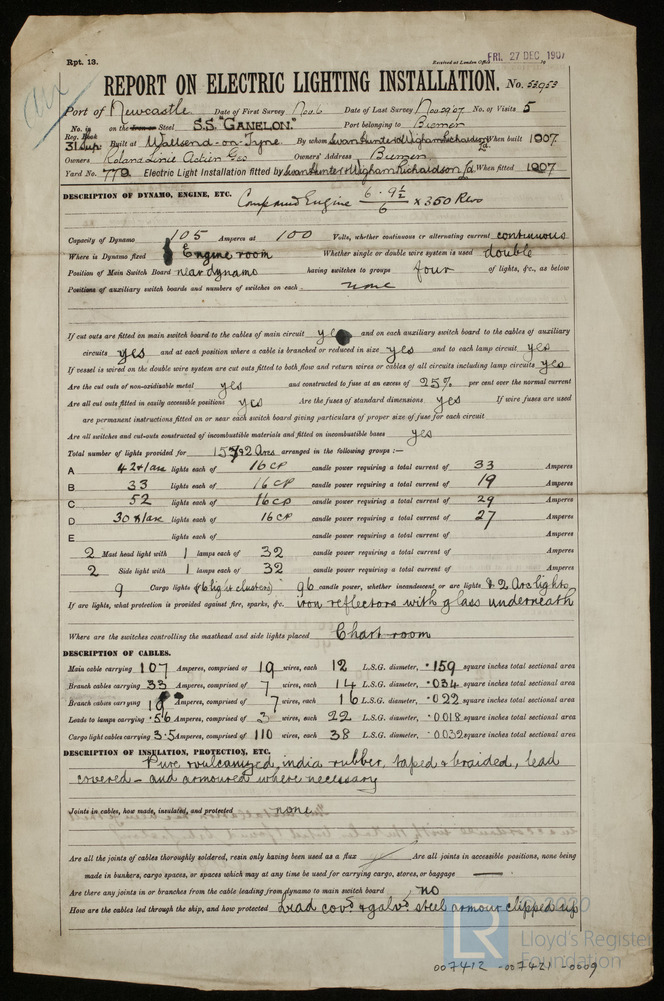 Rpt. 13.
Received at London Office FRI. 27 DEC. 1907
REPORT ON ELECTRIC LIGHTING INSTALLATION. No. 53953
Port of Newcastle Date of First Survey Nov. 6 Date of Last Survey Nov 29 07 No. of Visits 5
No. in on the Iron or Steel S.S. "GANELON." Port belonging to Bremen
Reg. Book
31 Sup. Built at Wallsend-on-Tyne By whom Swan Hunter & Wigham Richardson Ld. When built 1907.
Owners Roland Linie Actien Ges Owners' Address Bremen
Yard No. 779 Electric Light Installation fitted by Swan Hunter & Wigham Richardson Ld. When fitted 1907
DESCRIPTION OF DYNAMO, ENGINE, ETC.
Compound Engine 6 · 9½ / 6 × 350 Revs
Capacity of Dynamo 105 Amperes at 100 Volts, whether continuous or alternating current continuous
Where is Dynamo fixed Engine room Whether single or double wire system is used double
Position of Main Switch Board near dynamo having switches to groups four of lights, &c., as below
Positions of auxiliary switch boards and numbers of switches on each - none
If cut outs are fitted on main switch board to the cables of main circuit yes and on each auxiliary switch board to the cables of auxiliary
circuits yes and at each position where a cable is branched or reduced in size yes and to each lamp circuit yes
If vessel is wired on the double wire system are cut outs fitted to both flow and return wires or cables of all circuits including lamp circuits yes
Are the cut outs of non-oxidizable metal yes and constructed to fuse at an excess of 25% per cent over the normal current
Are all cut outs fitted in easily accessible positions yes Are the fuses of standard dimensions yes If wire fuses are used
are permanent instructions fitted on or near each switch board giving particulars of proper size of fuse for each circuit
Are all switches and cut-outs constructed of incombustible materials and fitted on incombustible bases yes
Total number of lights provided for 157 & 2 Arcs arranged in the following groups :—
A 42 + 1 arc lights each of 16 CP candle power requiring a total current of 33 Amperes
B 33 lights each of 16 CP candle power requiring a total current of 19 Amperes
C 52 lights each of 16 CP candle power requiring a total current of 29 Amperes
D 30 & 1 arc lights each of 16 CP candle power requiring a total current of 27 Amperes
E lights each of candle power requiring a total current of Amperes
2 Mast head light with 1 lamps each of 32 candle power requiring a total current of Amperes
2 Side light with 1 lamps each of 32 candle power requiring a total current of Amperes
9 Cargo lights of (6 light clusters) 96 candle power, whether incandescent or arc lights & 2 Arc lights
If arc lights, what protection is provided against fire, sparks, &c. iron reflectors with glass underneath
Where are the switches controlling the masthead and side lights placed Chart room
DESCRIPTION OF CABLES.
Main cable carrying 107 Amperes, comprised of 19 wires, each 12 L.S.G. diameter, ·159 square inches total sectional area
Branch cables carrying 33 Amperes, comprised of 7 wires, each 14 L.S.G. diameter, ·034 square inches total sectional area
Branch cables carrying 19 Amperes, comprised of 7 wires, each 16 L.S.G. diameter, ·022 square inches total sectional area
Leads to lamps carrying ·56 Amperes, comprised of 3 wires, each 22 L.S.G. diameter, ·0018 square inches total sectional area
Cargo light cables carrying 3·5 Amperes, comprised of 110 wires, each 38 L.S.G. diameter, ·0032 square inches total sectional area
DESCRIPTION OF INSULATION, PROTECTION, ETC.
Pure & vulcanized india rubber, taped & braided, lead
covered - and armoured where necessary
Joints in cables, how made, insulated, and protected none
Are all the joints of cables thoroughly soldered, resin only having been used as a flux Are all joints in accessible positions, none being
made in bunkers, cargo spaces, or spaces which may at any time be used for carrying cargo, stores, or baggage
Are there any joints in or branches from the cable leading from dynamo to main switch board no
How are the cables led through the ship, and how protected Lead covd. & galvd. steel armour clipped up
© 2020
LR
Lloyd's Register
Foundation
007412 -007421 -0009